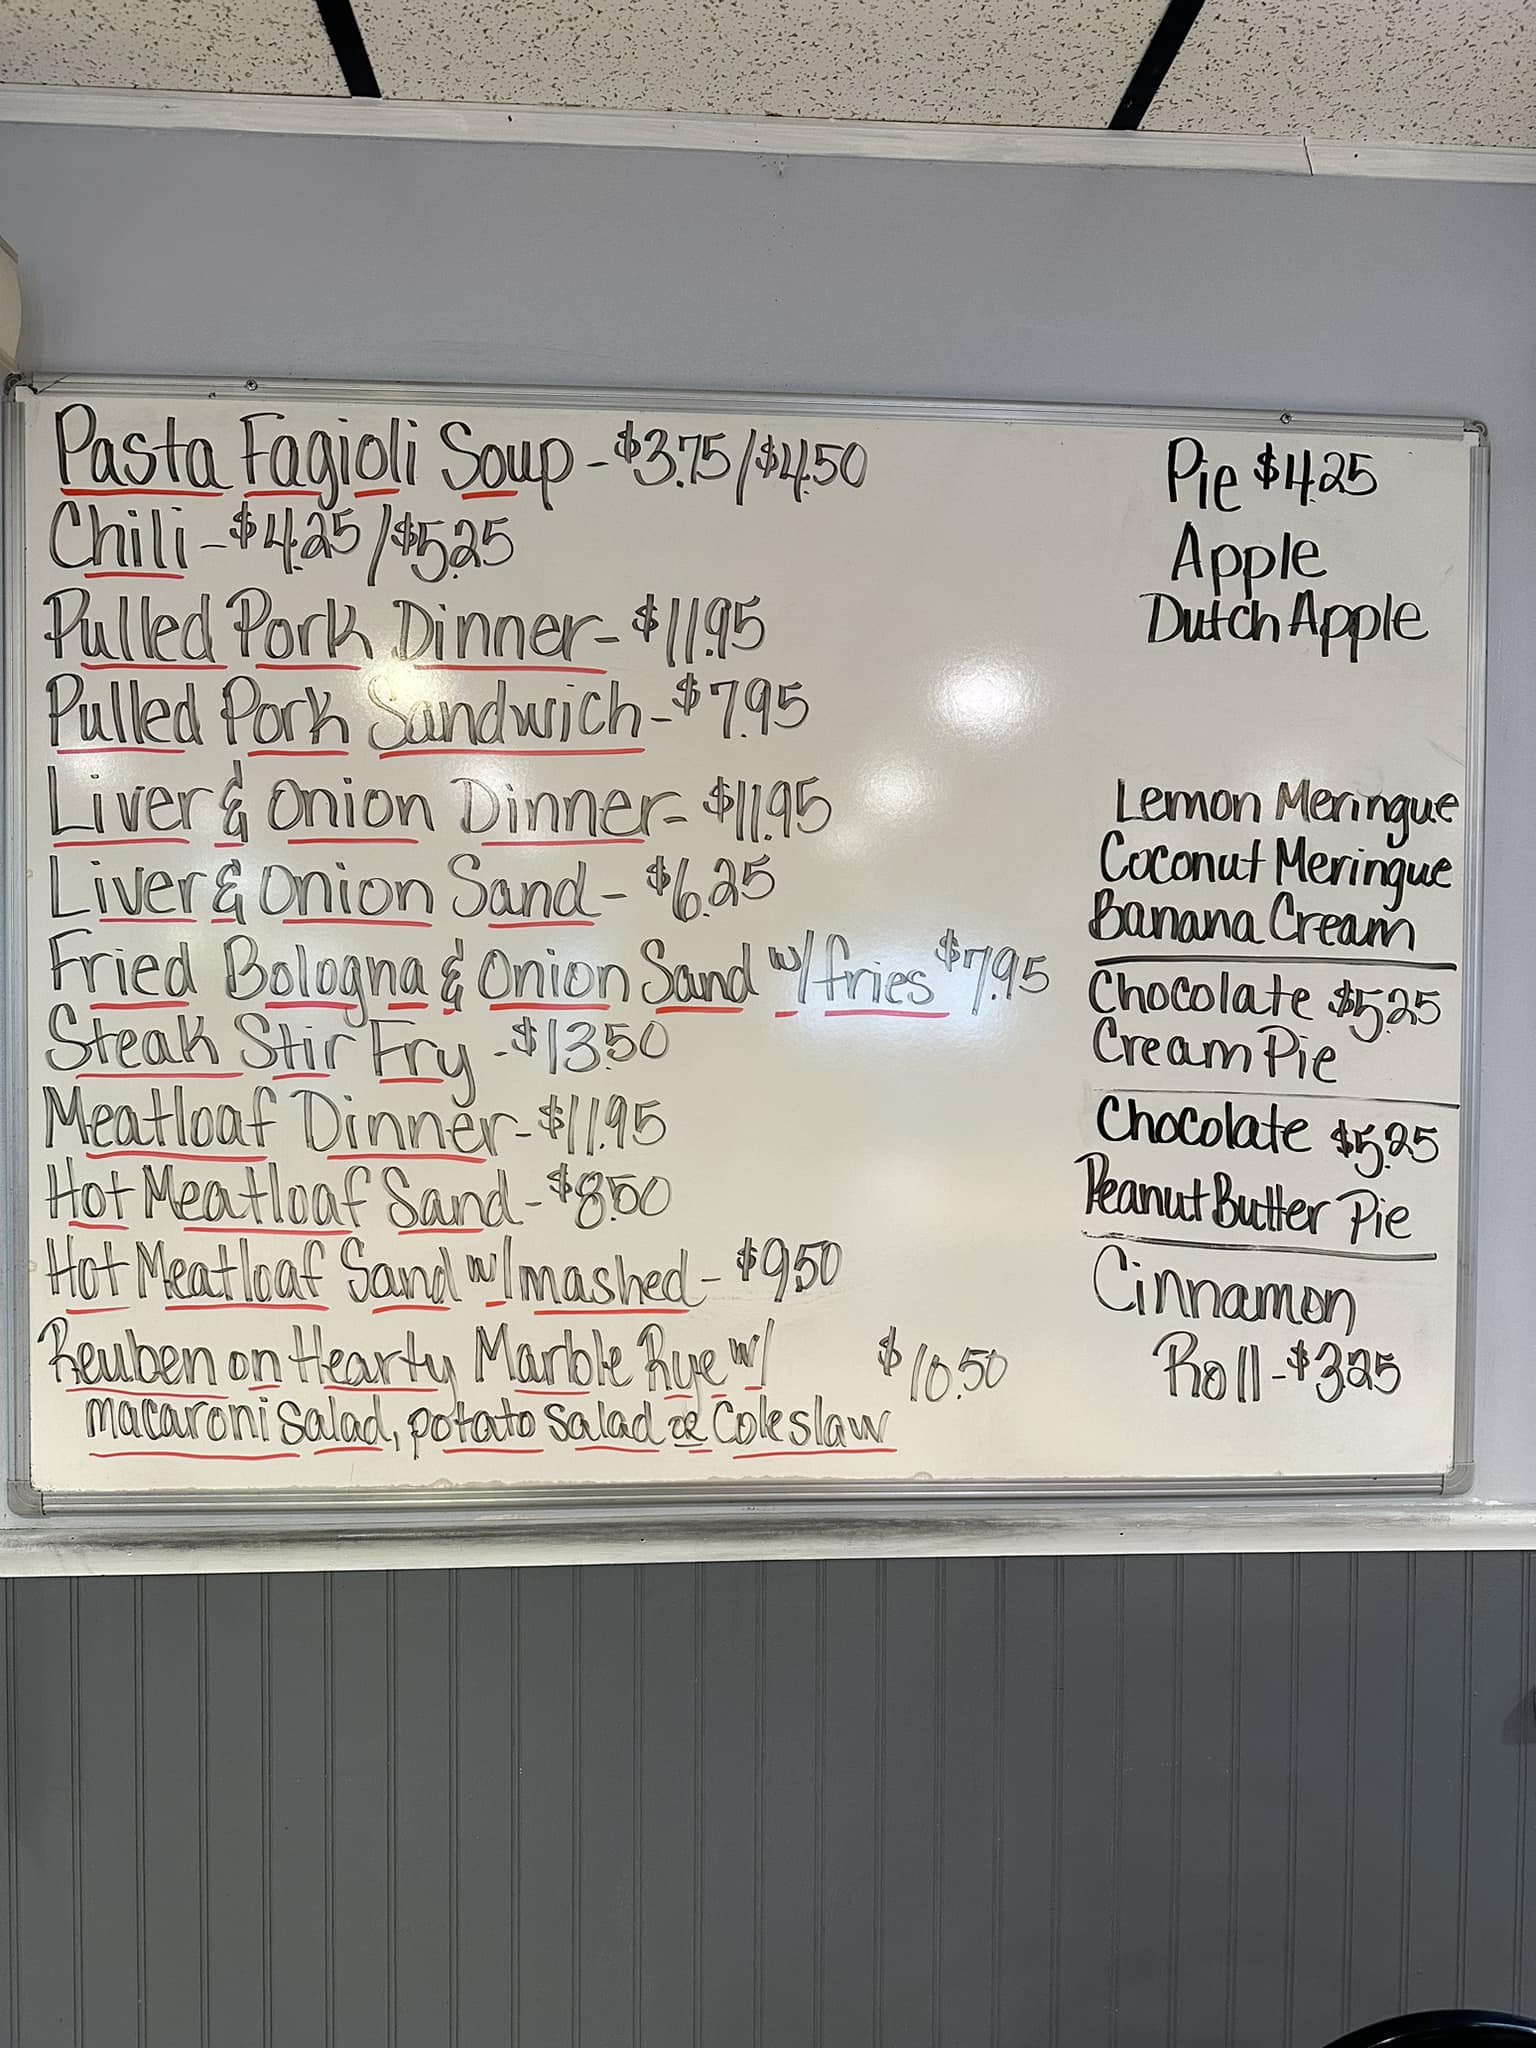 Pasta Fagioli Soup - $3.75/$4.50
Chili - $4.25/$5.25
Pulled Pork Dinner - $11.95
Pulled Pork Sandwich - $7.95
Liver & Onion Dinner - $11.95
Liver & Onion Sand - $6.25
Fried Bologna & Onion Sand w/fries $7.95
Steak Stir Fry - $13.50
Meatloaf Dinner - $11.95
Hot Meatloaf Sand - $8.50
Hot Meatloaf Sand w/mashed - $9.50
Reuben on Hearty Marble Rye w/ $10.50
macaroni salad, potato salad or Coleslaw
Pie $4.25
Apple
Dutch Apple
Lemon Meringue
Coconut Meringue
Banana Cream
Chocolate $5.25
Cream Pie
Chocolate $5.25
Peanut Butter Pie
Cinnamon
Roll - $3.25